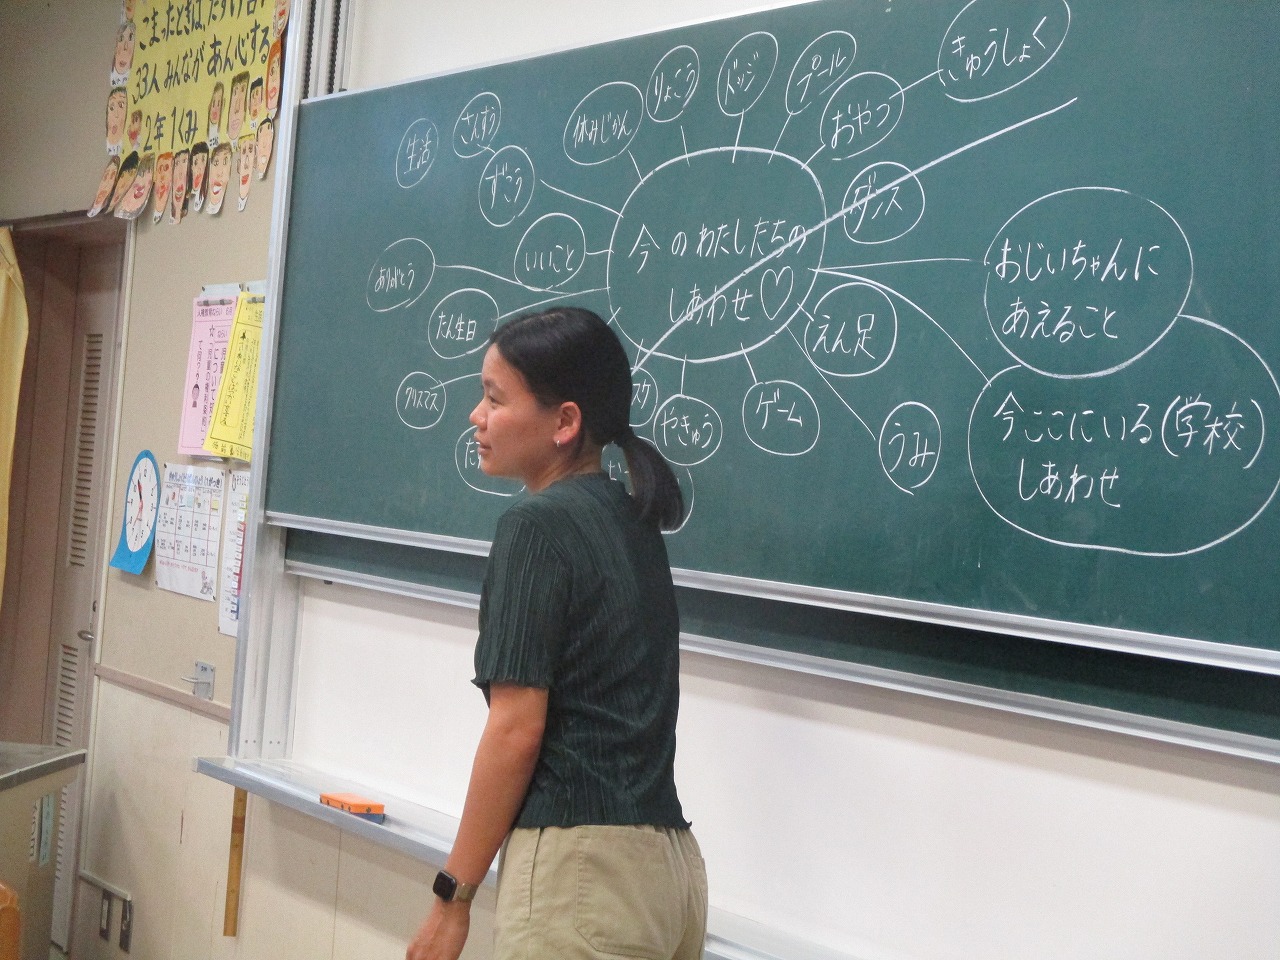 こまったときは、たすけ合い
33人みんながあん心する
2年1くみ
きゅうしょく
おやつ
プール
ドッジ
りょこう
休みじかん
さんすう
生活
ずこう
ダンス
いいこと
今のわたしたちの
しあわせ♡
おじいちゃんに
あえること
ありがとう
たん生日
えん足
クリスマス
やきゅう
ゲーム
うみ
今ここにいる(学校)
しあわせ